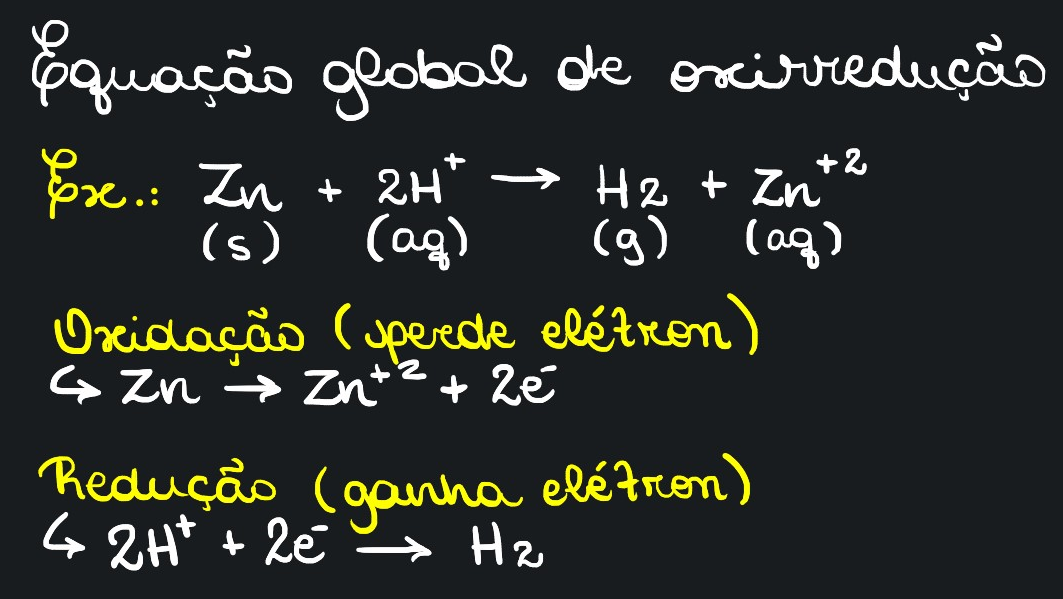 Equação global de oxirredução
Ex.: Zn + 2H⁺ → H2 + Zn⁺²
(s) (aq) (g) (aq)
Oxidação (perde elétron)
↪ Zn → Zn⁺² + 2e⁻
Redução (ganha elétron)
↪ 2H⁺ + 2e⁻ → H2